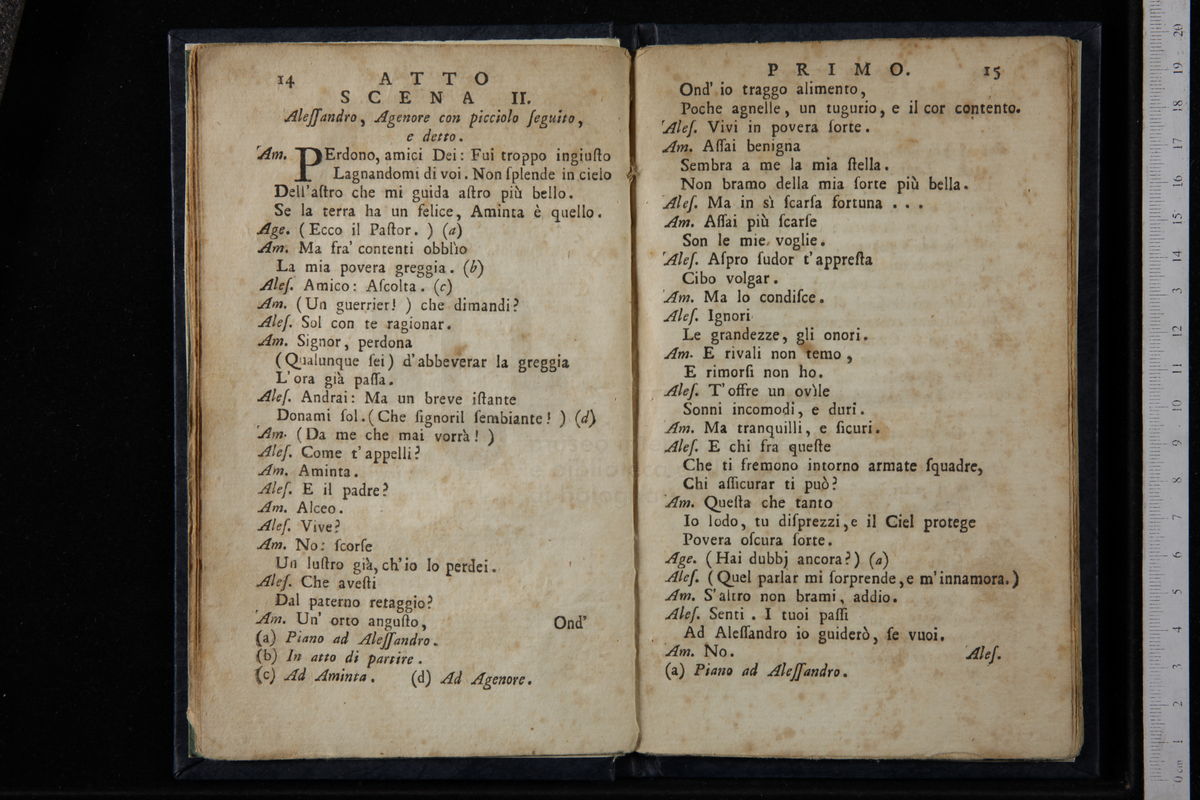 14 ATTO
SCENA II.
Aleſſandro, Agenore con picciolo ſeguito,
e detto.
Am. PErdono, amici Dei: Fui troppo ingiuſto
Lagnandomi di voi. Non ſplende in cielo
Dell'aſtro che mi guida aſtro più bello.
Se la terra ha un felice, Aminta è quello.
Age. (Ecco il Paſtor. ) (a)
Am. Ma fra' contenti obblìo
La mia povera greggia. (b)
Aleſ. Amico: Aſcolta. (c)
Am. (Un guerrier! ) che dimandi?
Aleſ. Sol con te ragionar.
Am. Signor, perdona
(Qualunque ſei) d'abbeverar la greggia
L'ora già paſſa.
Aleſ. Andrai: Ma un breve iſtante
Donami ſol. (Che ſignoril ſembiante! ) (d)
Am. (Da me che mai vorrà! )
Aleſ. Come t'appelli?
Am. Aminta.
Aleſ. E il padre?
Am. Alceo.
Aleſ. Vive?
Am. No: ſcorſe
Un luſtro già, ch'io lo perdei.
Aleſ. Che aveſti
Dal paterno retaggio?
Am. Un' orto anguſto,
Ond'
(a) Piano ad Aleſſandro.
(b) In atto di partire.
(c) Ad Aminta. (d) Ad Agenore.
PRIMO. 15
Ond' io traggo alimento,
Poche agnelle, un tugurio, e il cor contento.
Aleſ. Vivi in povera ſorte.
Am. Aſſai benigna
Sembra a me la mia ſtella.
Non bramo della mia ſorte più bella.
Aleſ. Ma in sì ſcarſa fortuna . . .
Am. Aſſai più ſcarſe
Son le mie voglie.
Aleſ. Aſpro ſudor t'appreſta
Cibo volgar.
Am. Ma lo condiſce.
Aleſ. Ignori
Le grandezze, gli onori.
Am. E rivali non temo,
E rimorſi non ho.
Aleſ. T'offre un ovìle
Sonni incomodi, e duri.
Am. Ma tranquilli, e ſicuri.
Aleſ. E chi fra queſte
Che ti fremono intorno armate ſquadre,
Chi aſſicurar ti può?
Am. Queſta che tanto
Io lodo, tu diſprezzi, e il Ciel protege
Povera oſcura ſorte.
Age. (Hai dubbj ancora?) (a)
Aleſ. (Quel parlar mi ſorprende, e m'innamora.)
Am. S'altro non brami, addio.
Aleſ. Senti. I tuoi paſſi
Ad Aleſſandro io guiderò, ſe vuoi.
Am. No.
Aleſ.
(a) Piano ad Aleſſandro.
0 cm 1 2 3 4 5 6 7 8 9 10 11 12 13 14 15 16 17 18 19 20